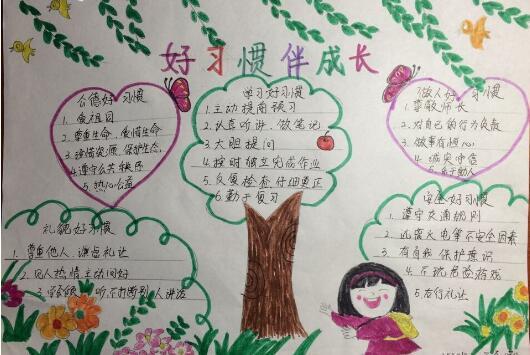 好习惯伴成长
公德好习惯
1. 爱祖国
2. 尊重生命,爱惜生命
3. 珍惜资源,保护生态.
4. 遵守公共秩序
5. 热心公益
学习好习惯
1. 主动提前预习
2. 认真听讲,做笔记
3. 大胆提问
4. 按时独立完成作业
5. 反复检查仔细更正
6 勤于复习
做人好习惯
1. 尊敬师长
2. 对自己的行为负责
3. 做事有恒心
4. 诚实守信
5. 乐于助人
礼貌好习惯
1. 尊重他人,谦恭礼让
2. 见人热情主动问好
听,不打断别人讲话
安全好习惯
1. 遵守交通规则
2. 远离火电等不安全因素
3. 有自我保护意识
4. 不玩危险游戏
5. 左行礼让